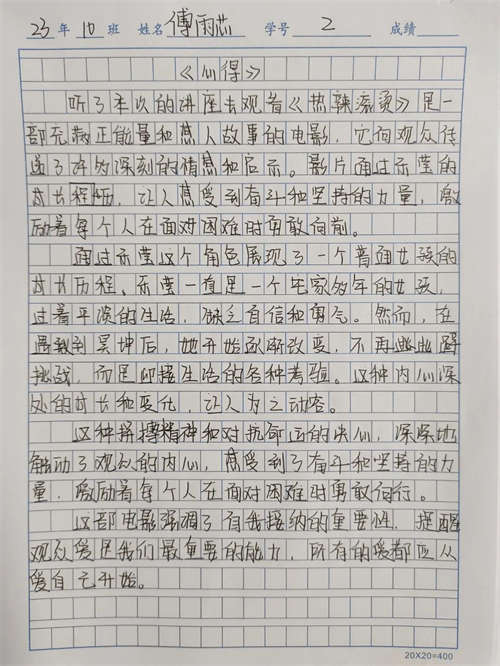 23年10班 姓名 傅雨芯 学号 2 成绩
《心得》
听了本次的讲座去观看《热辣滚烫》是一
部充满正能量和感人故事的电影，它向观众传
递了许多深刻的情感和启示。影片通过乐莹的
成长程历，让人感受到奋斗和坚持的力量，激
励着每个人在面对困难时勇敢向前。
通过乐莹这个角色展现了一个普通女孩的
成长历程。乐莹一直是一个宅家多年的女孩，
过着平淡的生活，缺乏自信和勇气。然而，在
遇到昊坤后，她开始逐渐改变，不再
挑战，而是迎接生活的各种考验。这种内心深
处的成长和变化，让人为之动容。
这种拼搏精神和对抗命运的决心，深深地
触动了观众的内心，感受到了奋斗和坚持的力
量，激励着每个人在面对困难时勇敢前行。
这部电影强调了自我接纳的重要性，提醒
观众爱是我们最重要的能力，所有的爱都应从
爱自己开始。
20X20=400